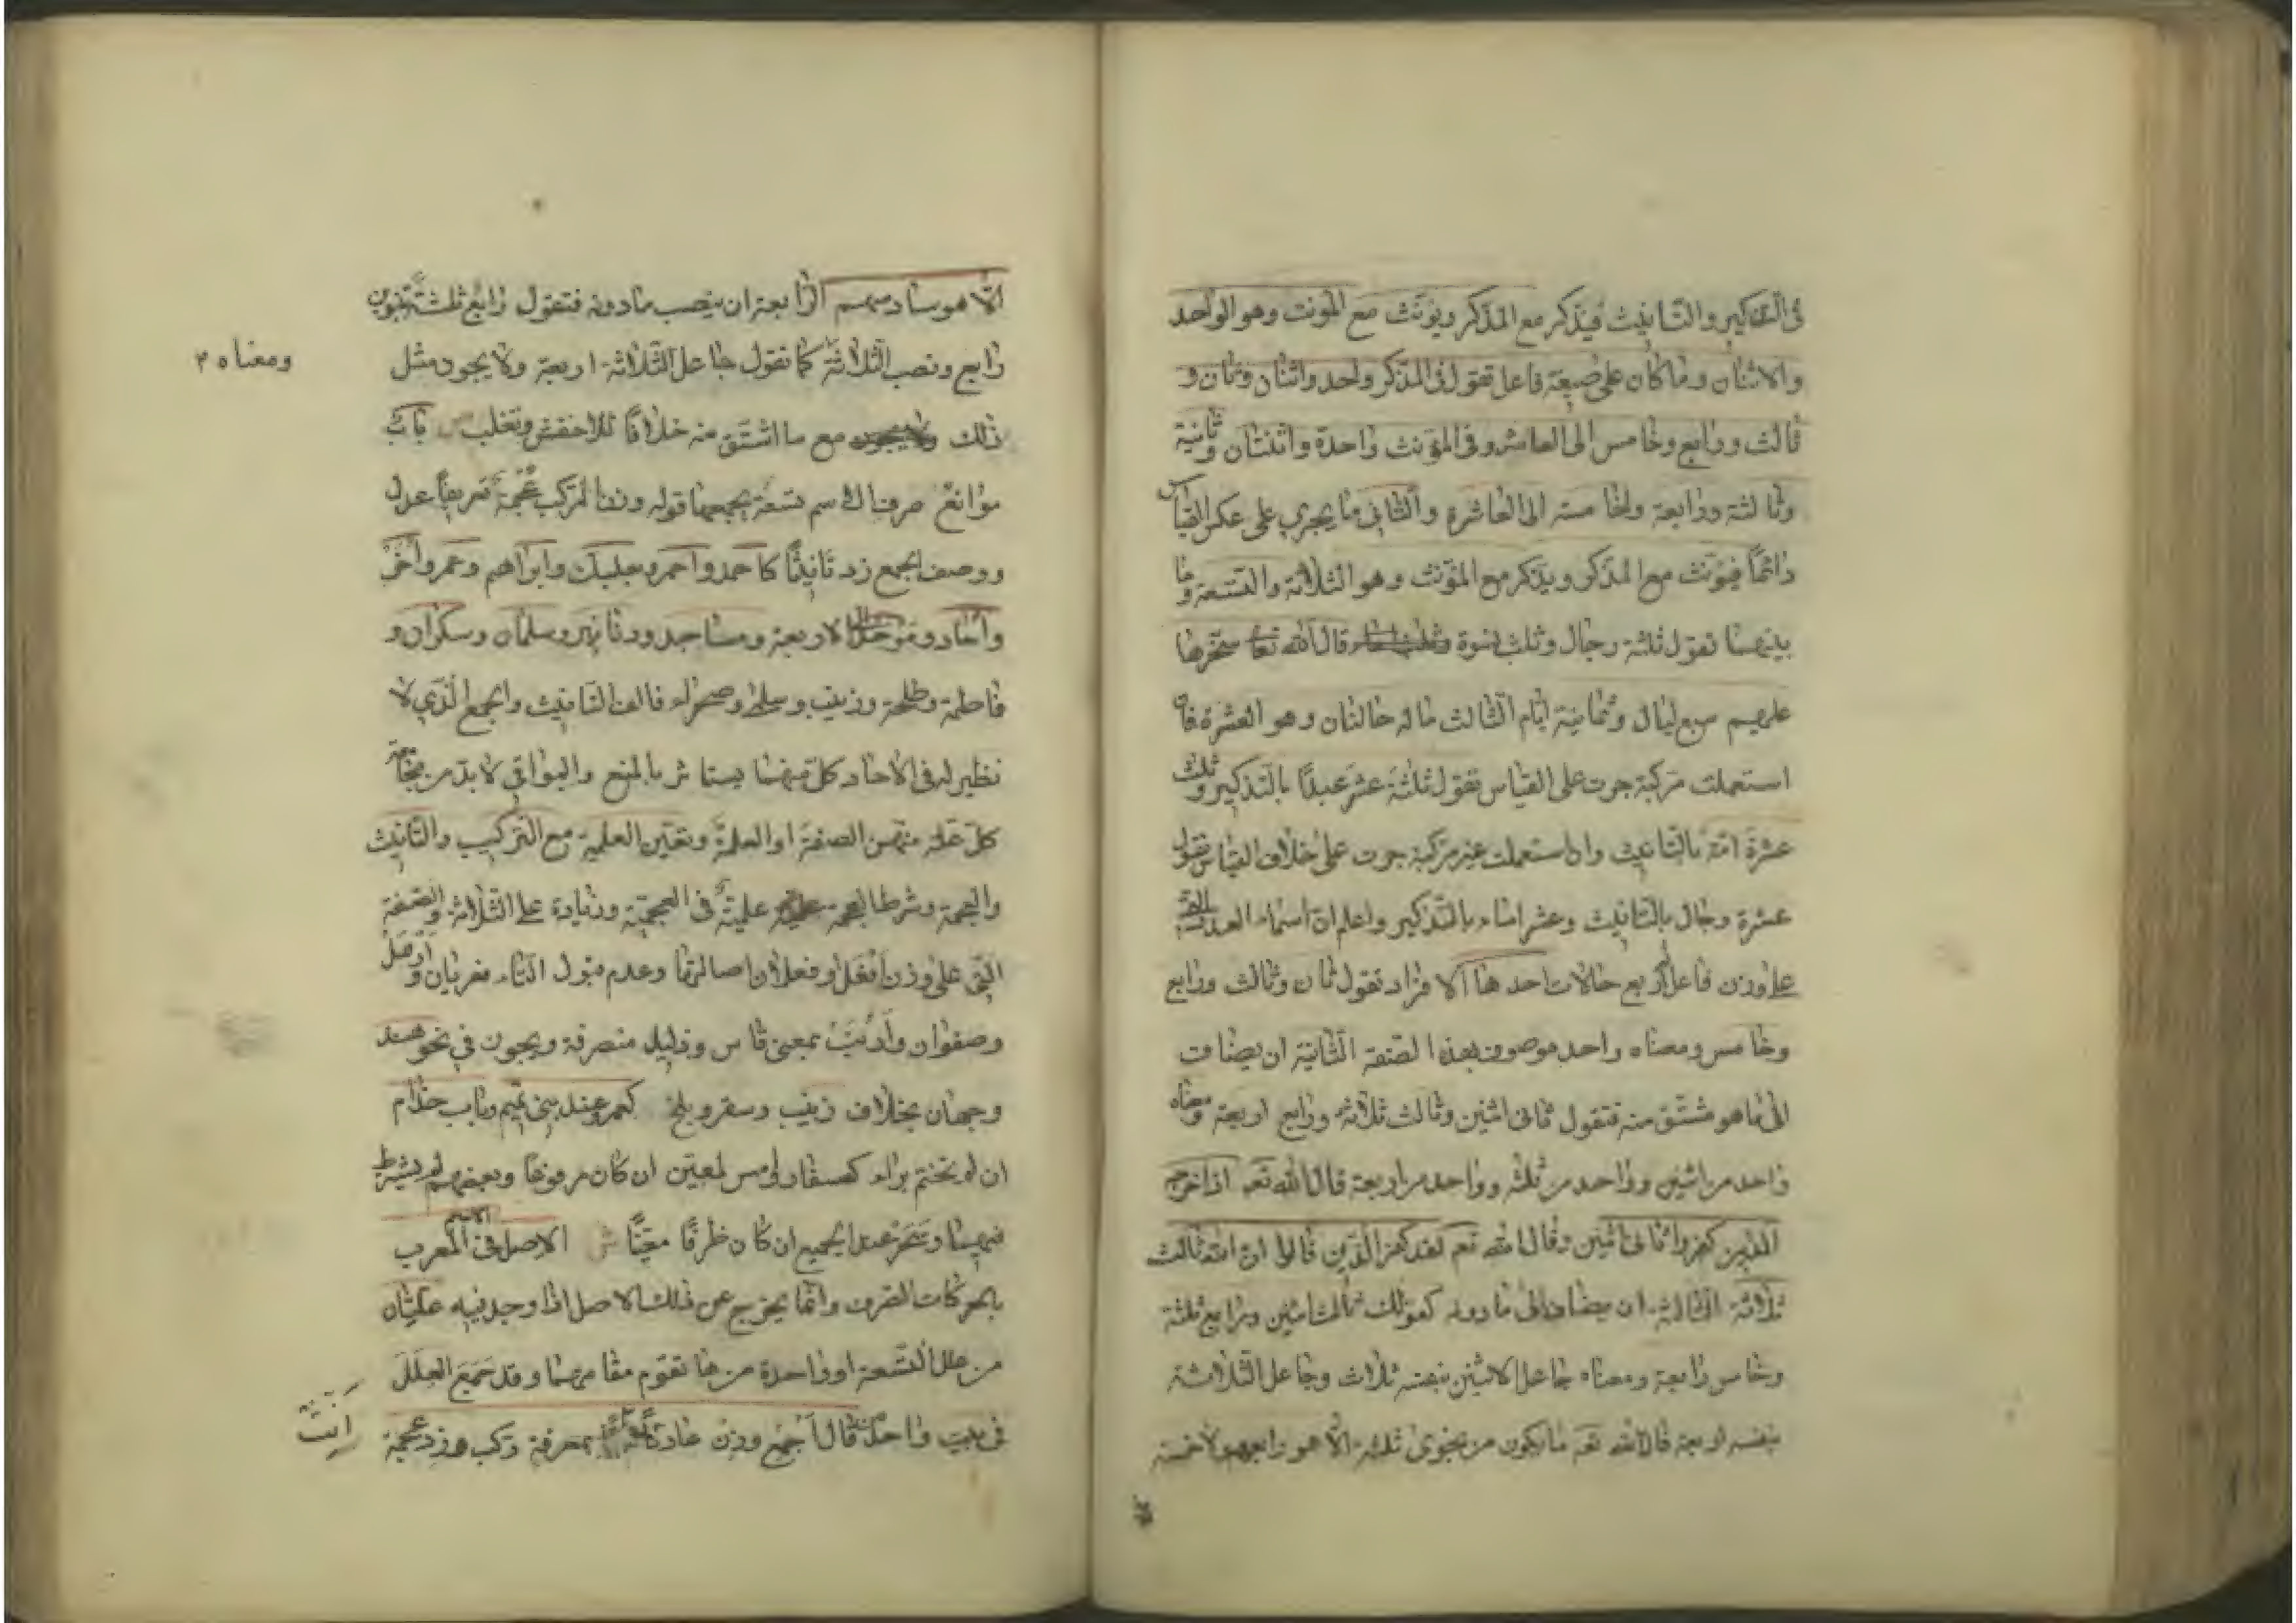 فى التذكير والتانيث فيذكر مع المذكر ويونث مع المونث وهو الواحد
والاثنان وما كان على صيغة فاعل تقول فى المذكر واحد واثنان وثان و
ثالث ورابع وخامس الى العاشر وفى المؤنث واحدة واثنتان وثانية
وثالثة ورابعة وخامسة الى العاشرة والثانى ما يجري على عكس القياس
دائما فيؤنث مع المذكر ويذكر مع المؤنث وهو الثلاثة والتسعة وما
بينهما تقول ثلثة رجال وثلث نسوة قال الله تعا سخرها
عليهم سبع ليال وثمانية ايام الثالث ما له حالتان وهو العشرة فان
استعملت مركبة جرت على القياس تقول ثلثة عشر عبدا بالتذكير وثلث
عشرة امة بالتانيث وان استعملت غير مركبة جرت على خلاف القياس تقول
عشرة رجال بالتانيث وعشر اماء بالتذكير واعلم ان اسماء العدد التى
على وزن فاعل اربع حالات احدها الافراد تقول ثان وثالث ورابع
وخامس ومعناه واحد موصوف بهذه الصفة الثانية ان يضاف
الى ما هو مشتق منه فتقول ثانى اثنين وثالث ثلاثة ورابع اربعة ومعناه
واحد من اثنين وواحد من ثلثة وواحد من اربعة قال الله تع اذ اخرجه
الذين كفروا ثانى اثنين وقال الله تع لقد كفر الذين قالوا ان الله ثالث
ثلاثة الثالثة ان يضاف الى ما دونه كقولك ثالث اثنين ورابع ثلثة
وخامس رابعة ومعناه جاعل الاثنين بنفسه ثلاث وجاعل الثلاثة
بنفسه اربعة قال الله تع ما يكون من نجوى ثلثة الا هو رابعهم ولا خمسة
الا هو سادسهم الرابعة ان ينصب ما دونه فتقول رابع ثلثة بتنوين
رابع ونصب الثلاثة كما تقول جاعل الثلاثة اربعة ولا يجوز مثل
ومعناه ٢
ذلك مع ما اشتق منه خلافا للاخفش وثعلب باب
موانع صرف الاسم تسعة يجمعها قوله وزن المركب عجمة تعريفا عدل
ووصف الجمع زد تانيثا كاحمد واحمر وبعلبك وابراهم وعمر واخر
واحاد وموحد الى الاربعة ومساجد ودنانير وسلمان وسكران و
فاطمة وطلحة وزينب وسلمى وصحراء فالف التانيث والجمع الذي لا
نظير له فى الاحاد كل منهما يستاثر بالمنع والبواقي لا بد من مجامعة
كل علة منهن الصفة او العلمية وتعين العلمية مع التركيب والتانيث
والعجمة وشرط العجمة علمية فى العجمية وزيادة على الثلاثة والصفة
التى على وزن افعل او فعلان اصالتها وعدم قبول التاء فعريان وارمل
وصفوان وارنب بمعنى قاس وذليل منصرفة ويجوز فى نحو هند
وجهان بخلاف زينب وسقر وبلخ كعمر وعند بنى تميم وباب حذام
ان لم تختم براء كسفار وامس لمعين ان كان مرفوعا وبعضهم لم يشترط
فيهما وسحر عند الجميع ان كان ظرفا معينا ش الاصل فى الاسم المعرب
بالحركات الصرف وانما يخرج عن ذلك الاصل اذا وجد فيه علتان
من علل التسعة او واحدة منها تقوم مقامهما وقد جمع العلل
فى بيت واحد من قال اجمع وزن عادلا بمعرفة ركب وزد عجمة
انث